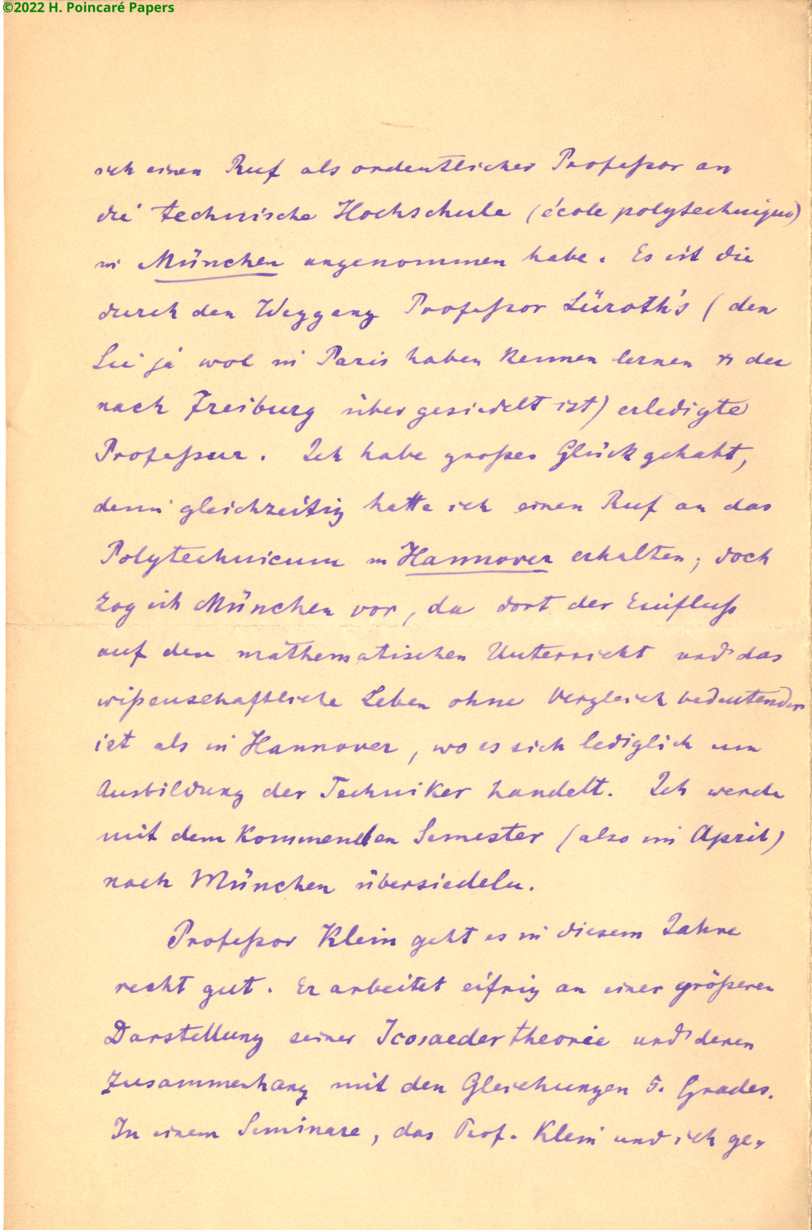 ©2022 H. Poincaré Papers
ich einen Ruf als ordentlicher Professor an
die technische Hochschule (école polytechnique)
in München angenommen habe. Es ist die
durch den Weggang Professor Lüroth's (den
Sie ja wol in Paris haben kennen lernen u der
nach Freiburg übergesiedelt ist) erledigte
Professur. Ich habe großes Glück gehabt,
denn gleichzeitig hatte ich einen Ruf an das
Polytechnicum in Hannover erhalten; doch
zog ich München vor, da dort der Einfluß
auf den mathematischen Unterricht und das
wißenschaftliche Leben ohne Vergleich bedeutender
ist als in Hannover, wo es sich lediglich um
Ausbildung der Techniker handelt. Ich werde
mit dem kommenden Semester (also im April)
nach München übersiedeln.
Profeßor Klein geht es in diesem Jahre
recht gut. Er arbeitet eifrig an einer größeren
Darstellung seiner Icosaedertheorie und deren
Zusammenhang mit den Gleichungen 5. Grades.
In einem Seminare, das Prof. Klein und ich ge-